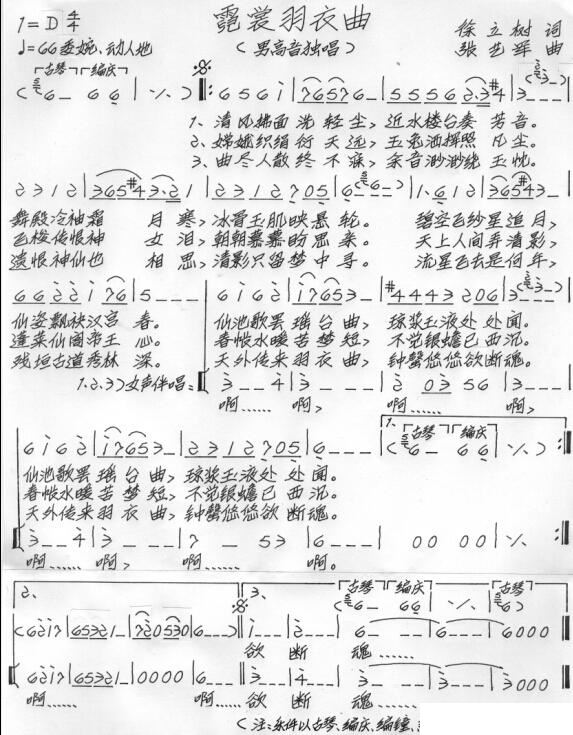 霓裳羽衣曲
1=D 4/4
(男高音独唱)
徐立树 词
♩=66委婉、动人地
张艺军 曲
古琴 编庆
(6̲ 6 6 | ·/· ) ||: 6 5 6 i | 7 6 5 7 6 - | 5 5 5 6 2·3 #4 | 3 - - - |
1、清风拂面洗轻尘,近水楼台奏芳音。
2、嫦娥织绢衍天远,玉兔洒挥照凡尘。
3、曲尽人散终不寐,余音渺渺绕玉枕。
2 3 1 2 | 3 6 5 #4 3·2 1 | 2 3 1 2 7 0 5 | 6 - - - | 1· 6 1 2 | 3 6 5 #4 3 - |
舞殿冷袖霜 月寒,冰骨玉肌映悬轮。 碧空飞纱星追月,
飞梭传恨神 女泪,朝朝慕慕盼思来。 天上人间弄清影,
遗恨神仙也 相思,清影只留梦中寻。 流星飞去是何年,
6 6 2 2 i 7 6 | 5 - - - | 6 i 6 2 | i 7 6 5 3 - | #4 4 4 3 2 0 6 | 3 - - - |
仙姿飘袂汉宫春。 仙池歌罢瑶台曲,琼浆玉液处处闻。
蓬莱仙阁帝王心。 春帐水暖苦梦短,不觉银蟾已西沉。
残垣古道秀林深。 天外传来羽衣曲,钟磬悠悠欲断魂。
1.2.3)女声伴唱: 3 - - 4 | 3 - - - | 2 0 3 5 6 | 3 - - - |
啊…… 啊, 啊…… 啊,
1、 古琴 编庆
6 i 6 2 | i 7 6 5 3 - | 2 3 1 2 7 0 5 | 6 - - - | ( 6 - 6 6 | ·/· ) :||
仙池歌罢瑶台曲,琼浆玉液处处闻。
春帐水暖苦梦短,不觉银蟾已西沉。
天外传来羽衣曲,钟磬悠悠欲断魂。
3 - - 4 | 3 - - - | 7 - 5 3 | 6 - - - | 0 0 0 0 | ·/· :||
啊…… 啊, 啊…… 啊。
2、 3、 古琴 编庆 古琴
(6 2 i 7 | 6 5 3 2 1 - | 7 2 0 5 3 0 | 6 - - - ) || i - - - | 2 - - - | 6 - - - | 6 - - - | 6 0 0 0 ||
欲 断 魂……
6 2 i 7 | 6 5 3 2 1 - | 0 0 0 0 | 6 - - - || 3 - - - | 4 - - - | 3 - - - | 3 - - - | 3 0 0 0 ||
啊…… 啊…… 欲 断 魂……
(注:乐件以古琴、编庆、编钟、